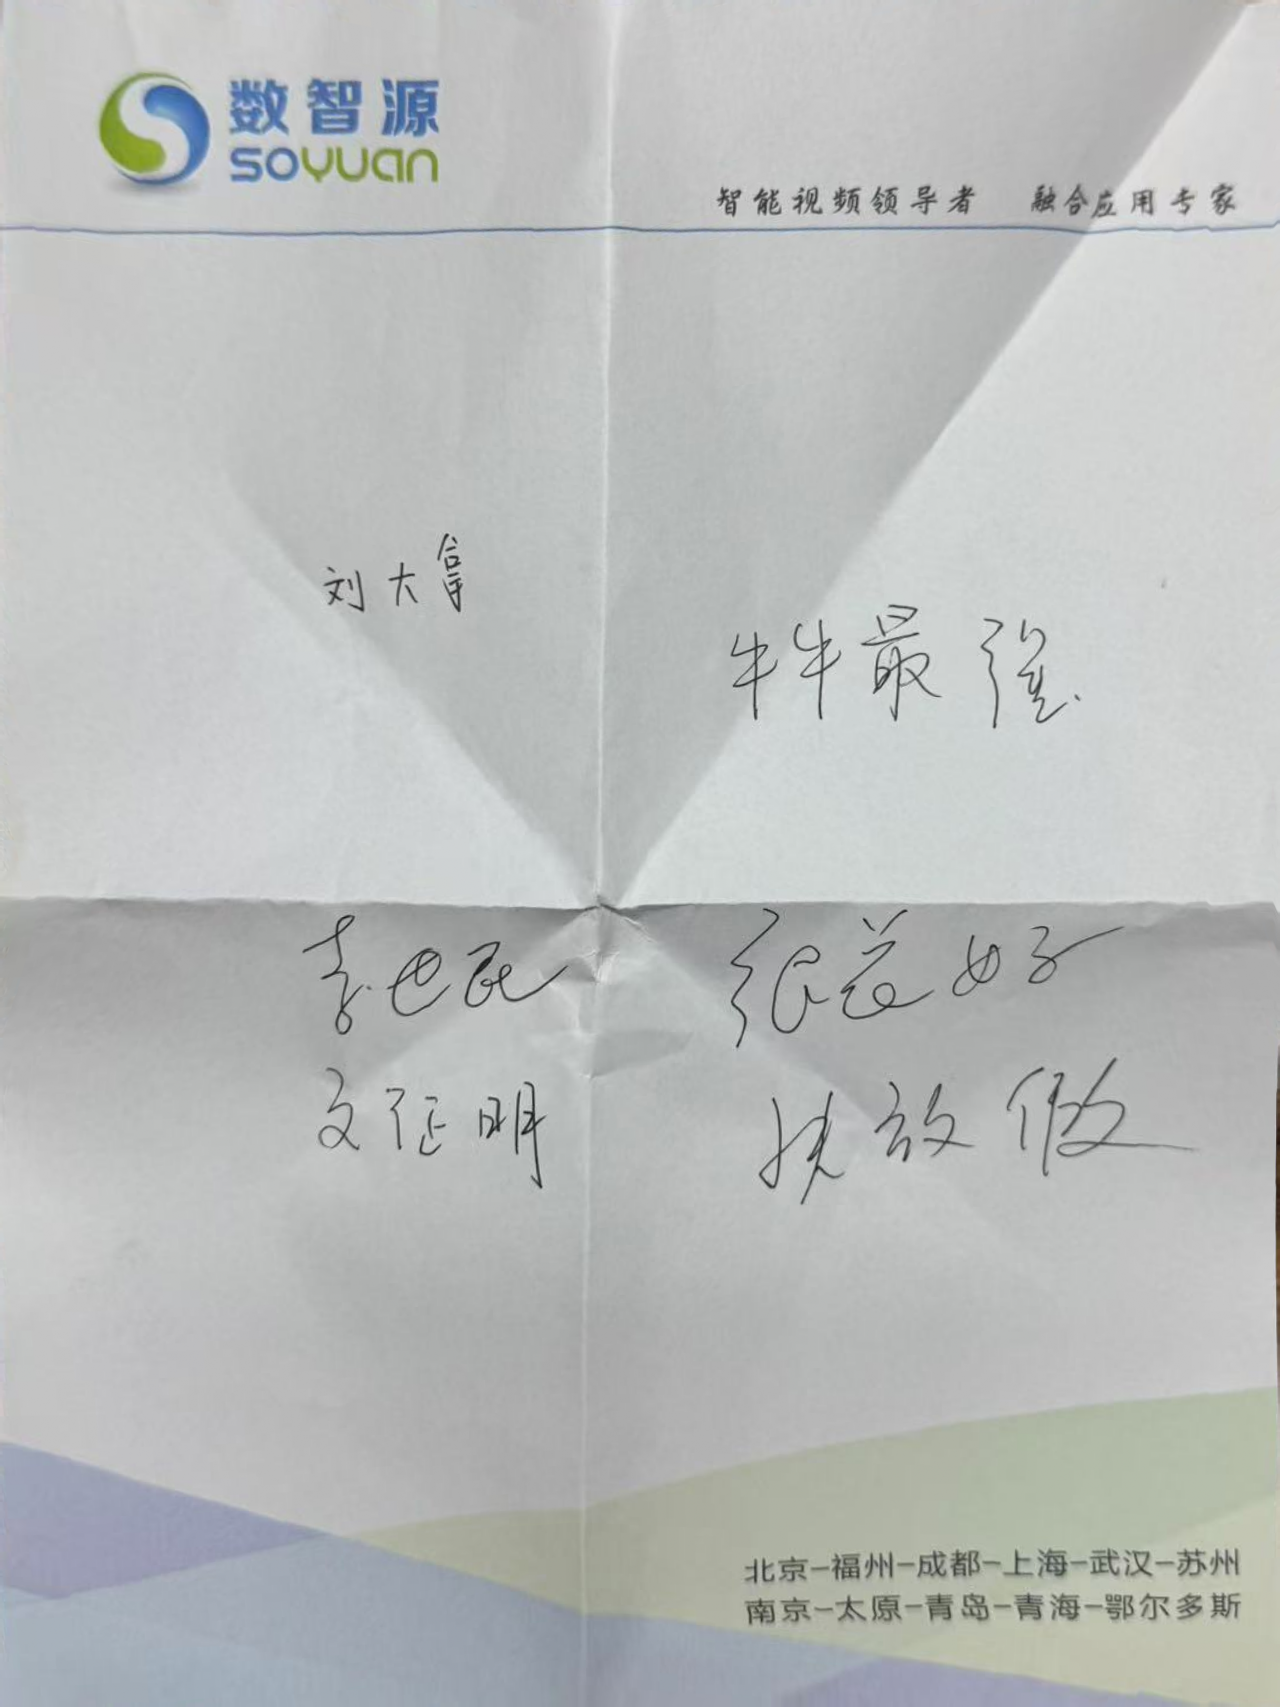 数智源
soyuan
智能视频领导者 融合应用专家
刘大拿
牛牛最强
李世民
张益好
文征明
放假
北京-福州-成都-上海-武汉-苏州
南京-太原-青岛-青海-鄂尔多斯